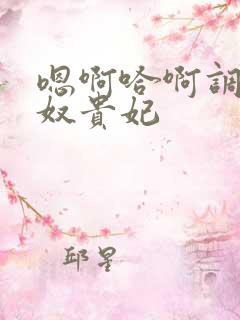 嗯啊哈啊調
奴貴妃
邱星